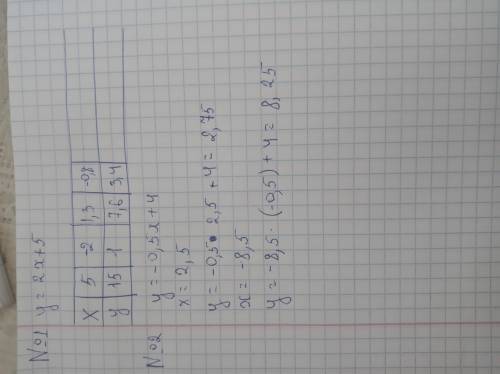 №1 y = 2x+5
x 5 -2 1,3 -0,8
y 15 1 7,6 3,4
№2 y = -0,5x+4
x = 2,5
y = -0,5 · 2,5 + 4 = 2,75
x = -8,5
y = -8,5 · (-0,5) + 4 = 8,25